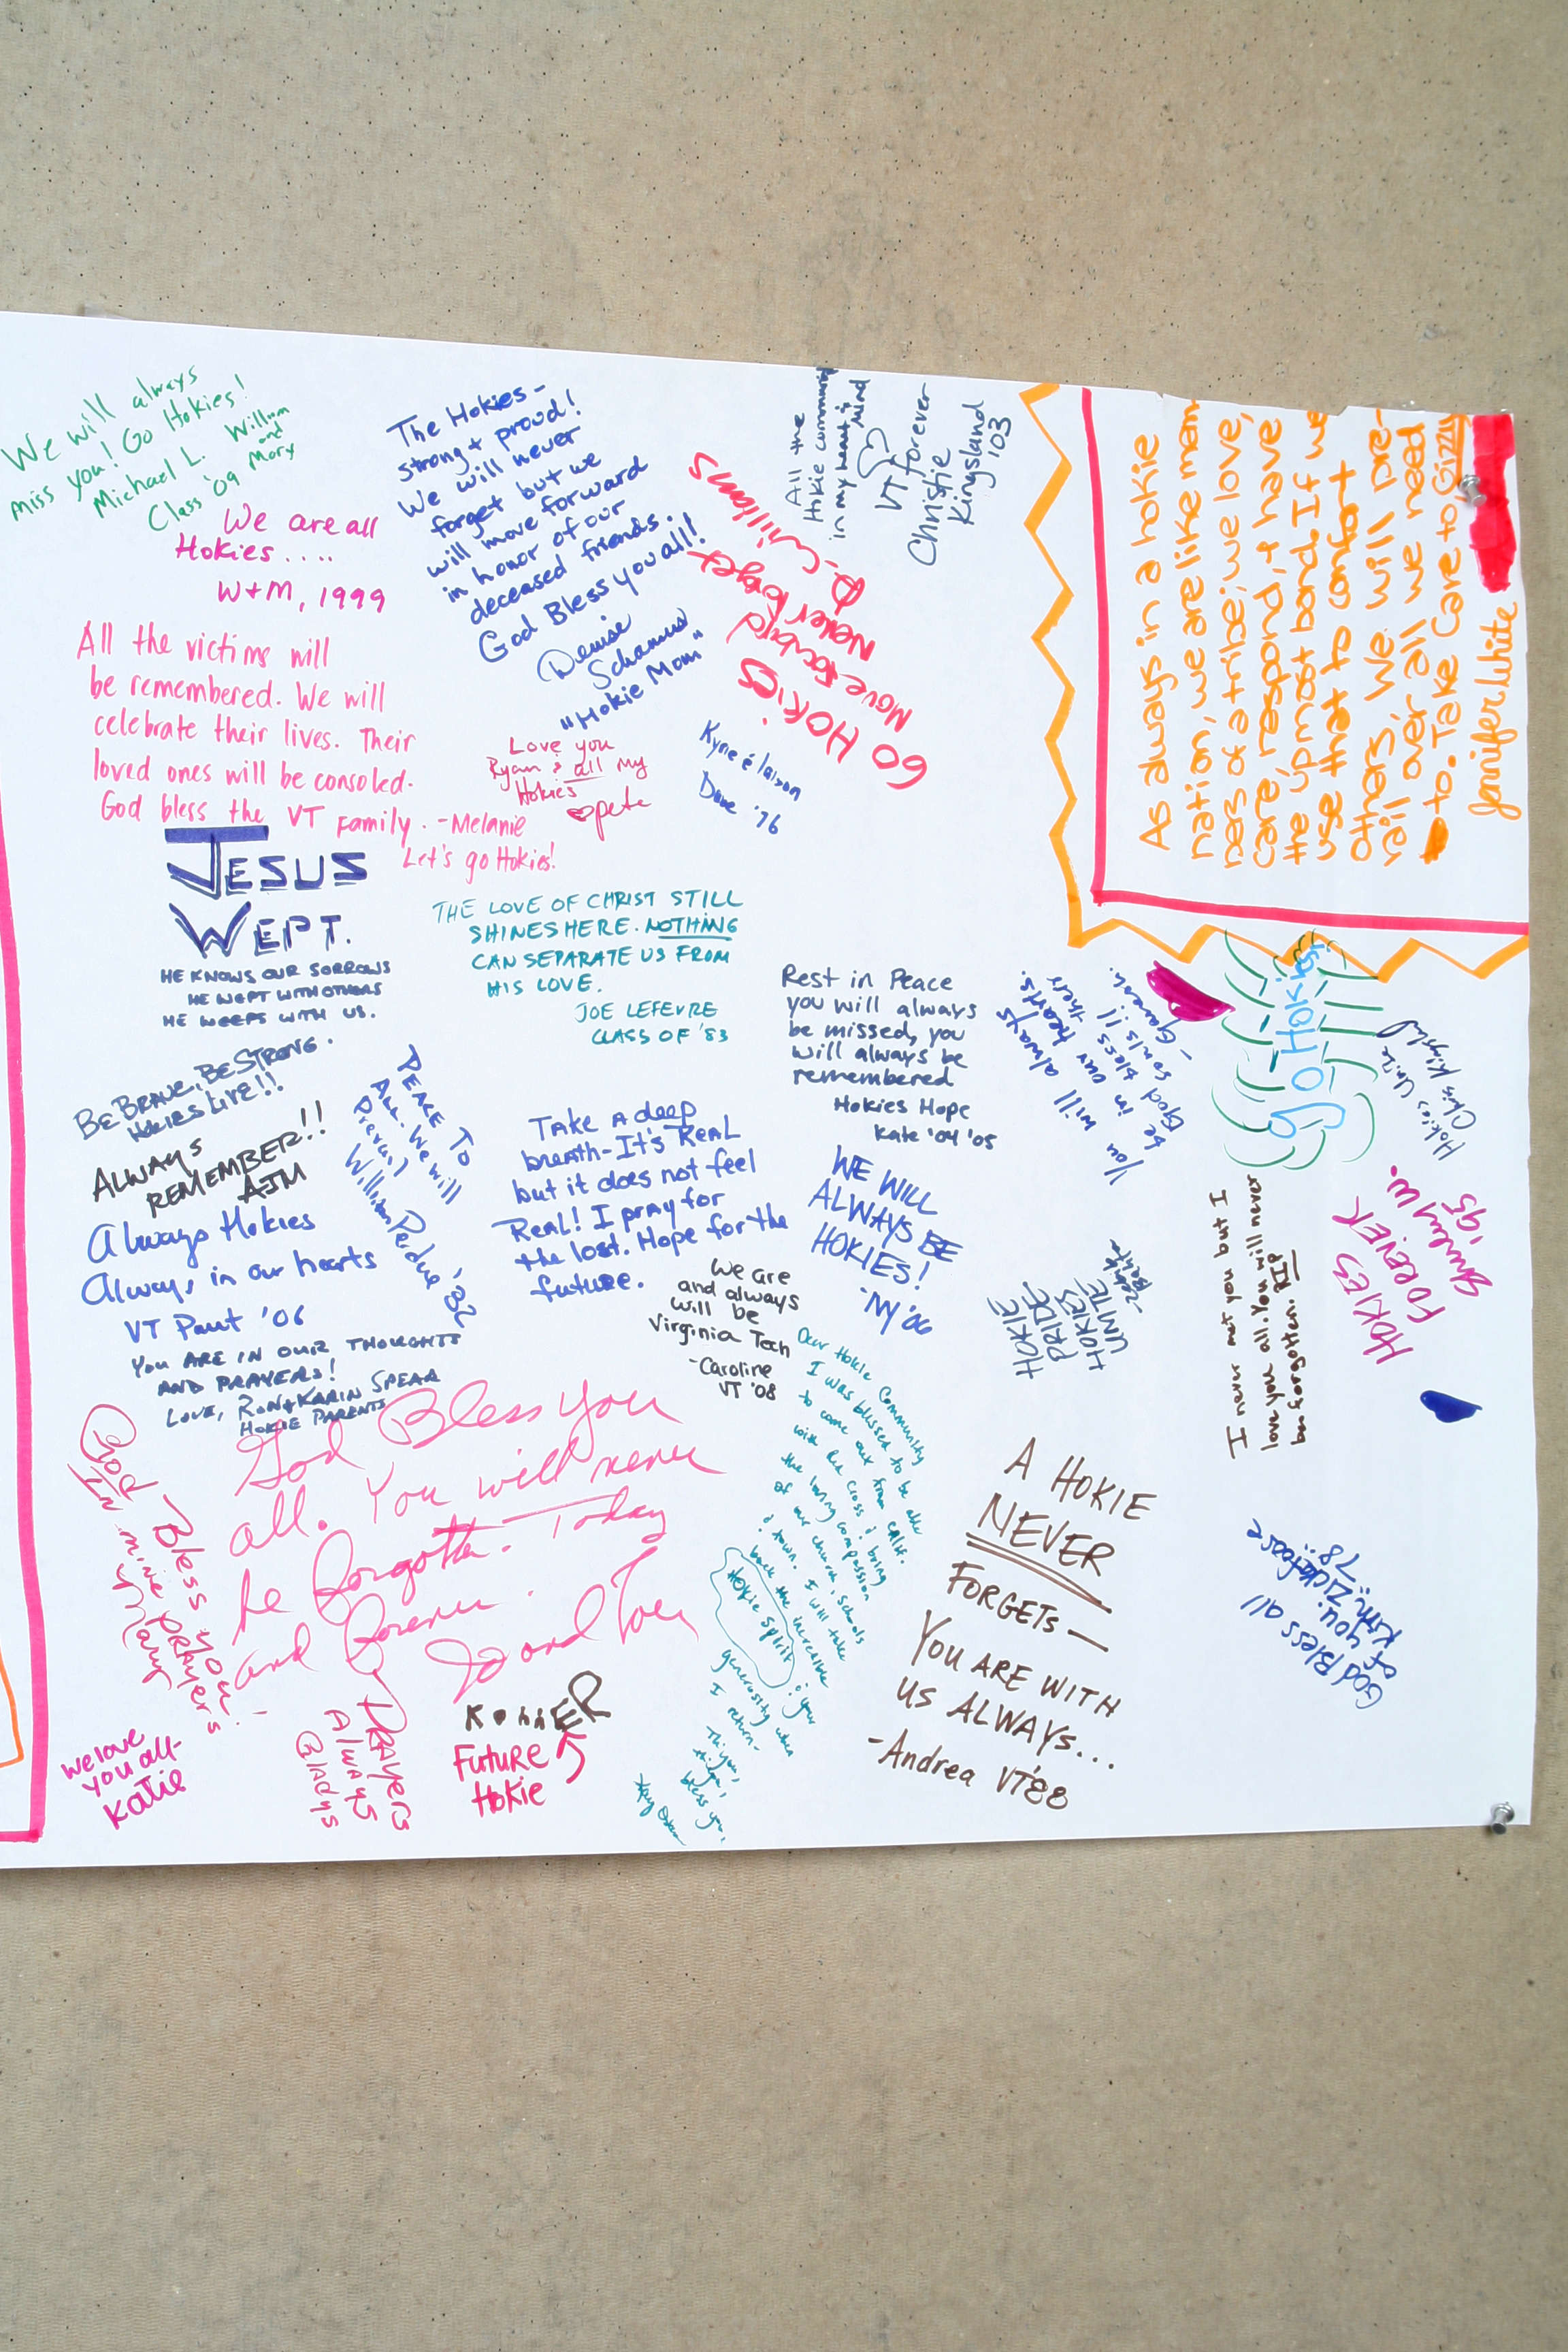 We will always
miss you! Go Hokies!
Michael L. William
and
Mary
Class '09
We are all
Hokies....
W+M, 1999
All the victims will
be remembered. We will
celebrate their lives. Their
loved ones will be consoled.
God bless the VT Family. -Melanie
Let's go Hokies!
The Hokies-
strong + proud!
We will never
forget but we
will move forward
in honor of our
deceased friends.
God Bless you all!
Denise
"Hokie Mom"
Love you
Ryan & all my
Hokies
pete
GO HOKIES
Move forward
Never forget
D. Williams
Dave '76
All the
Hokie community
in my heart &
mind
VT forever
Christie
Kingsland
'03
As always in a hokie
nation, we are like mem
bers of a tribe; we love,
care, respond, & have
the upmost bond. If we
use that to comfort
others, we will pre-
vail over all we need
to. Take Care to, Gizzy
Jennifer White
JESUS
WEPT.
HE KNOWS OUR SORROWS
HE WEPT WITH OTHERS
HE WEEPS WITH US.
THE LOVE OF CHRIST STILL
SHINES HERE. NOTHING
CAN SEPARATE US FROM
HIS LOVE.
JOE LEFEVRE
CLASS OF '83
Rest in Peace
you will always
be missed, you
will always be
remembered
Hokies Hope
Kate '04 '05
You will always
be in our hearts.
God bless their
souls!!
- Ganesh.
Go Hokies
Hokies Unite
BE BRAVE, BE STRONG.
HOKIES LIVE!!
ALWAYS
REMEMBER!!
AJM
PEACE TO
All. We will
Prevail
William Perdue '82
Always Hokies
Always in our hearts
VT Parent '06
YOU ARE IN OUR THOUGHTS
AND PRAYERS!
LOVE, RON & KARIN SPEAR
HOKIE PARENTS
Take a deep
breath-It's Real
but it does not feel
Real! I pray for
the lost. Hope for the
future.
WE WILL
ALWAYS BE
HOKIES!
-NY '06
We are
and always
will be
Virginia Tech
-Caroline
VT '08
HOKIE
PRIDE
HOKIES
UNITE
I never met you but I
love you all. You will never
be forgotten. RIP
HOKIES
FOREVER
Shirley W.
'95
God Bless you
all. You will never
be forgotten. Today
and forever.
God Bless you!
In mine prayers
Mary
we love
you all-
Katie
PRAYERS
Always
Gladys
KonnER
Future
Hokie
Dear Hokie Community
I was blessed to be able
to come out from Calif.
with Red Cross & bring
the loving compassion
of our church, schools
& town. I will take
back the incredible
Hokie spirit & your
generosity when
I return-
Thank you,
bless you,
A HOKIE
NEVER
FORGETS—
YOU ARE WITH
US ALWAYS...
-Andrea VT '88
God Bless all
of you.
78